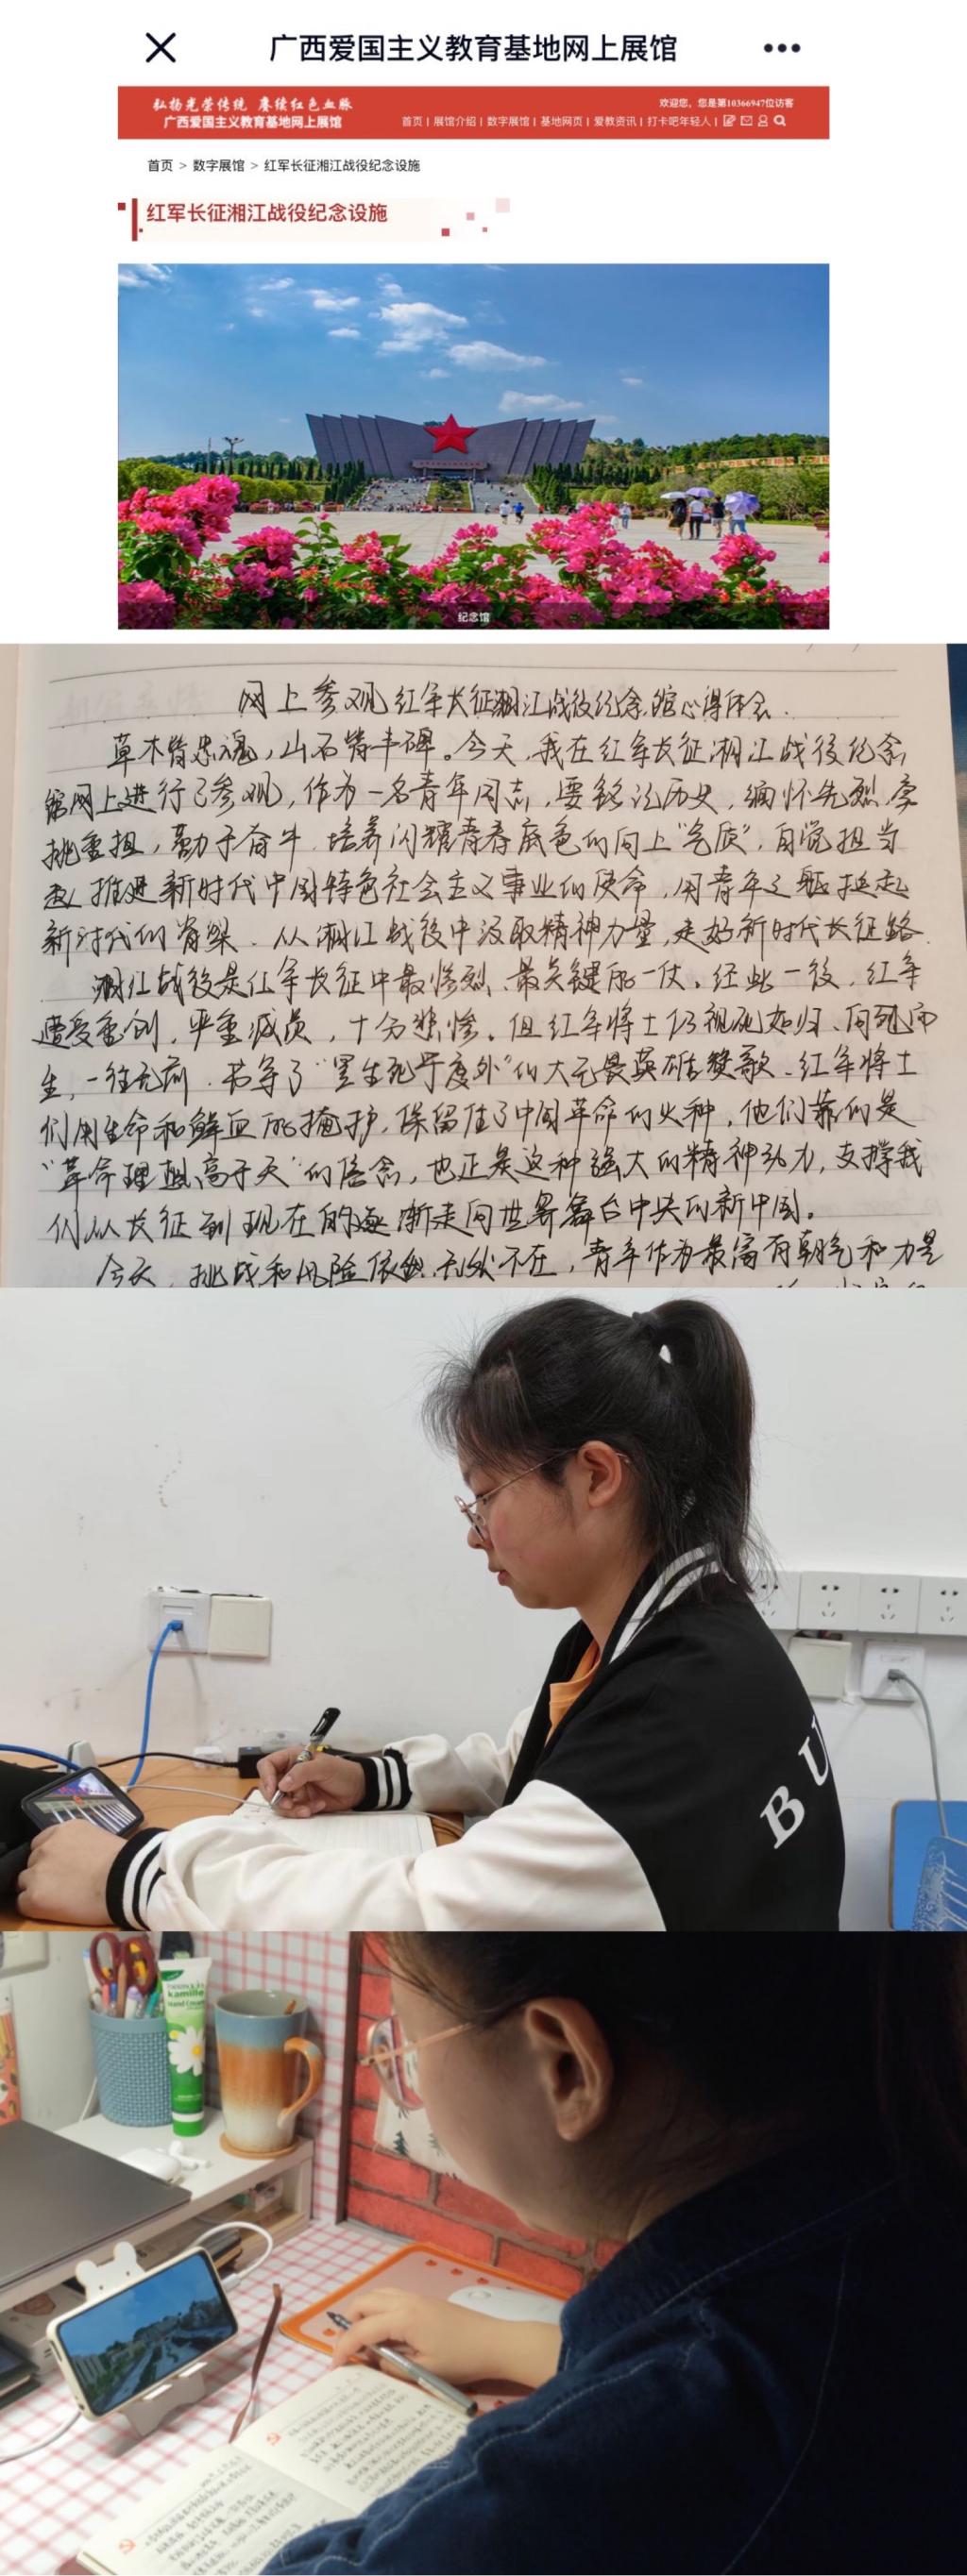 广西爱国主义教育基地网上展馆
弘扬光荣传统 赓续红色血脉
欢迎您，您是第10366947位访客
广西爱国主义教育基地网上展馆
首页 | 展馆介绍 | 数字展馆 | 基地网页 | 爱教资讯 | 打卡吧年轻人 |
首页 > 数字展馆 > 红军长征湘江战役纪念设施
红军长征湘江战役纪念设施
纪念馆
网上参观红军长征湘江战役纪念馆心得体会.
草木皆忠魂，山石皆丰碑。今天，我在红军长征湘江战役纪念
馆网上进行了参观，作为一名青年同志，要铭记历史，缅怀先烈，勇
挑重担，勤于奋斗，培养闪耀青春底色的向上“气质”，自觉担当
起推进新时代中国特色社会主义事业的使命，用青年之躯挺起
新时代的脊梁、从湘江战役中汲取精神力量，走好新时代长征路.
湘江战役是红军长征中最惨烈、最关键的一仗。经此一役，红军
遭受重创，严重减员，十分悲惨。但红军将士仍视死如归、向死而
生，一往无前，书写了“置生死于度外”的大无畏英雄赞歌、红军将士
们用生命和鲜血的掩护，保留住了中国革命的火种，他们靠的是
“革命理想高于天”的信念，也正是这种强大的精神动力，支撑我
们从长征到现在的逐渐走向世界舞台中央的新中国。
今天，挑战和风险依然无处不在，青年作为最富有朝气和力量
B U
kamille